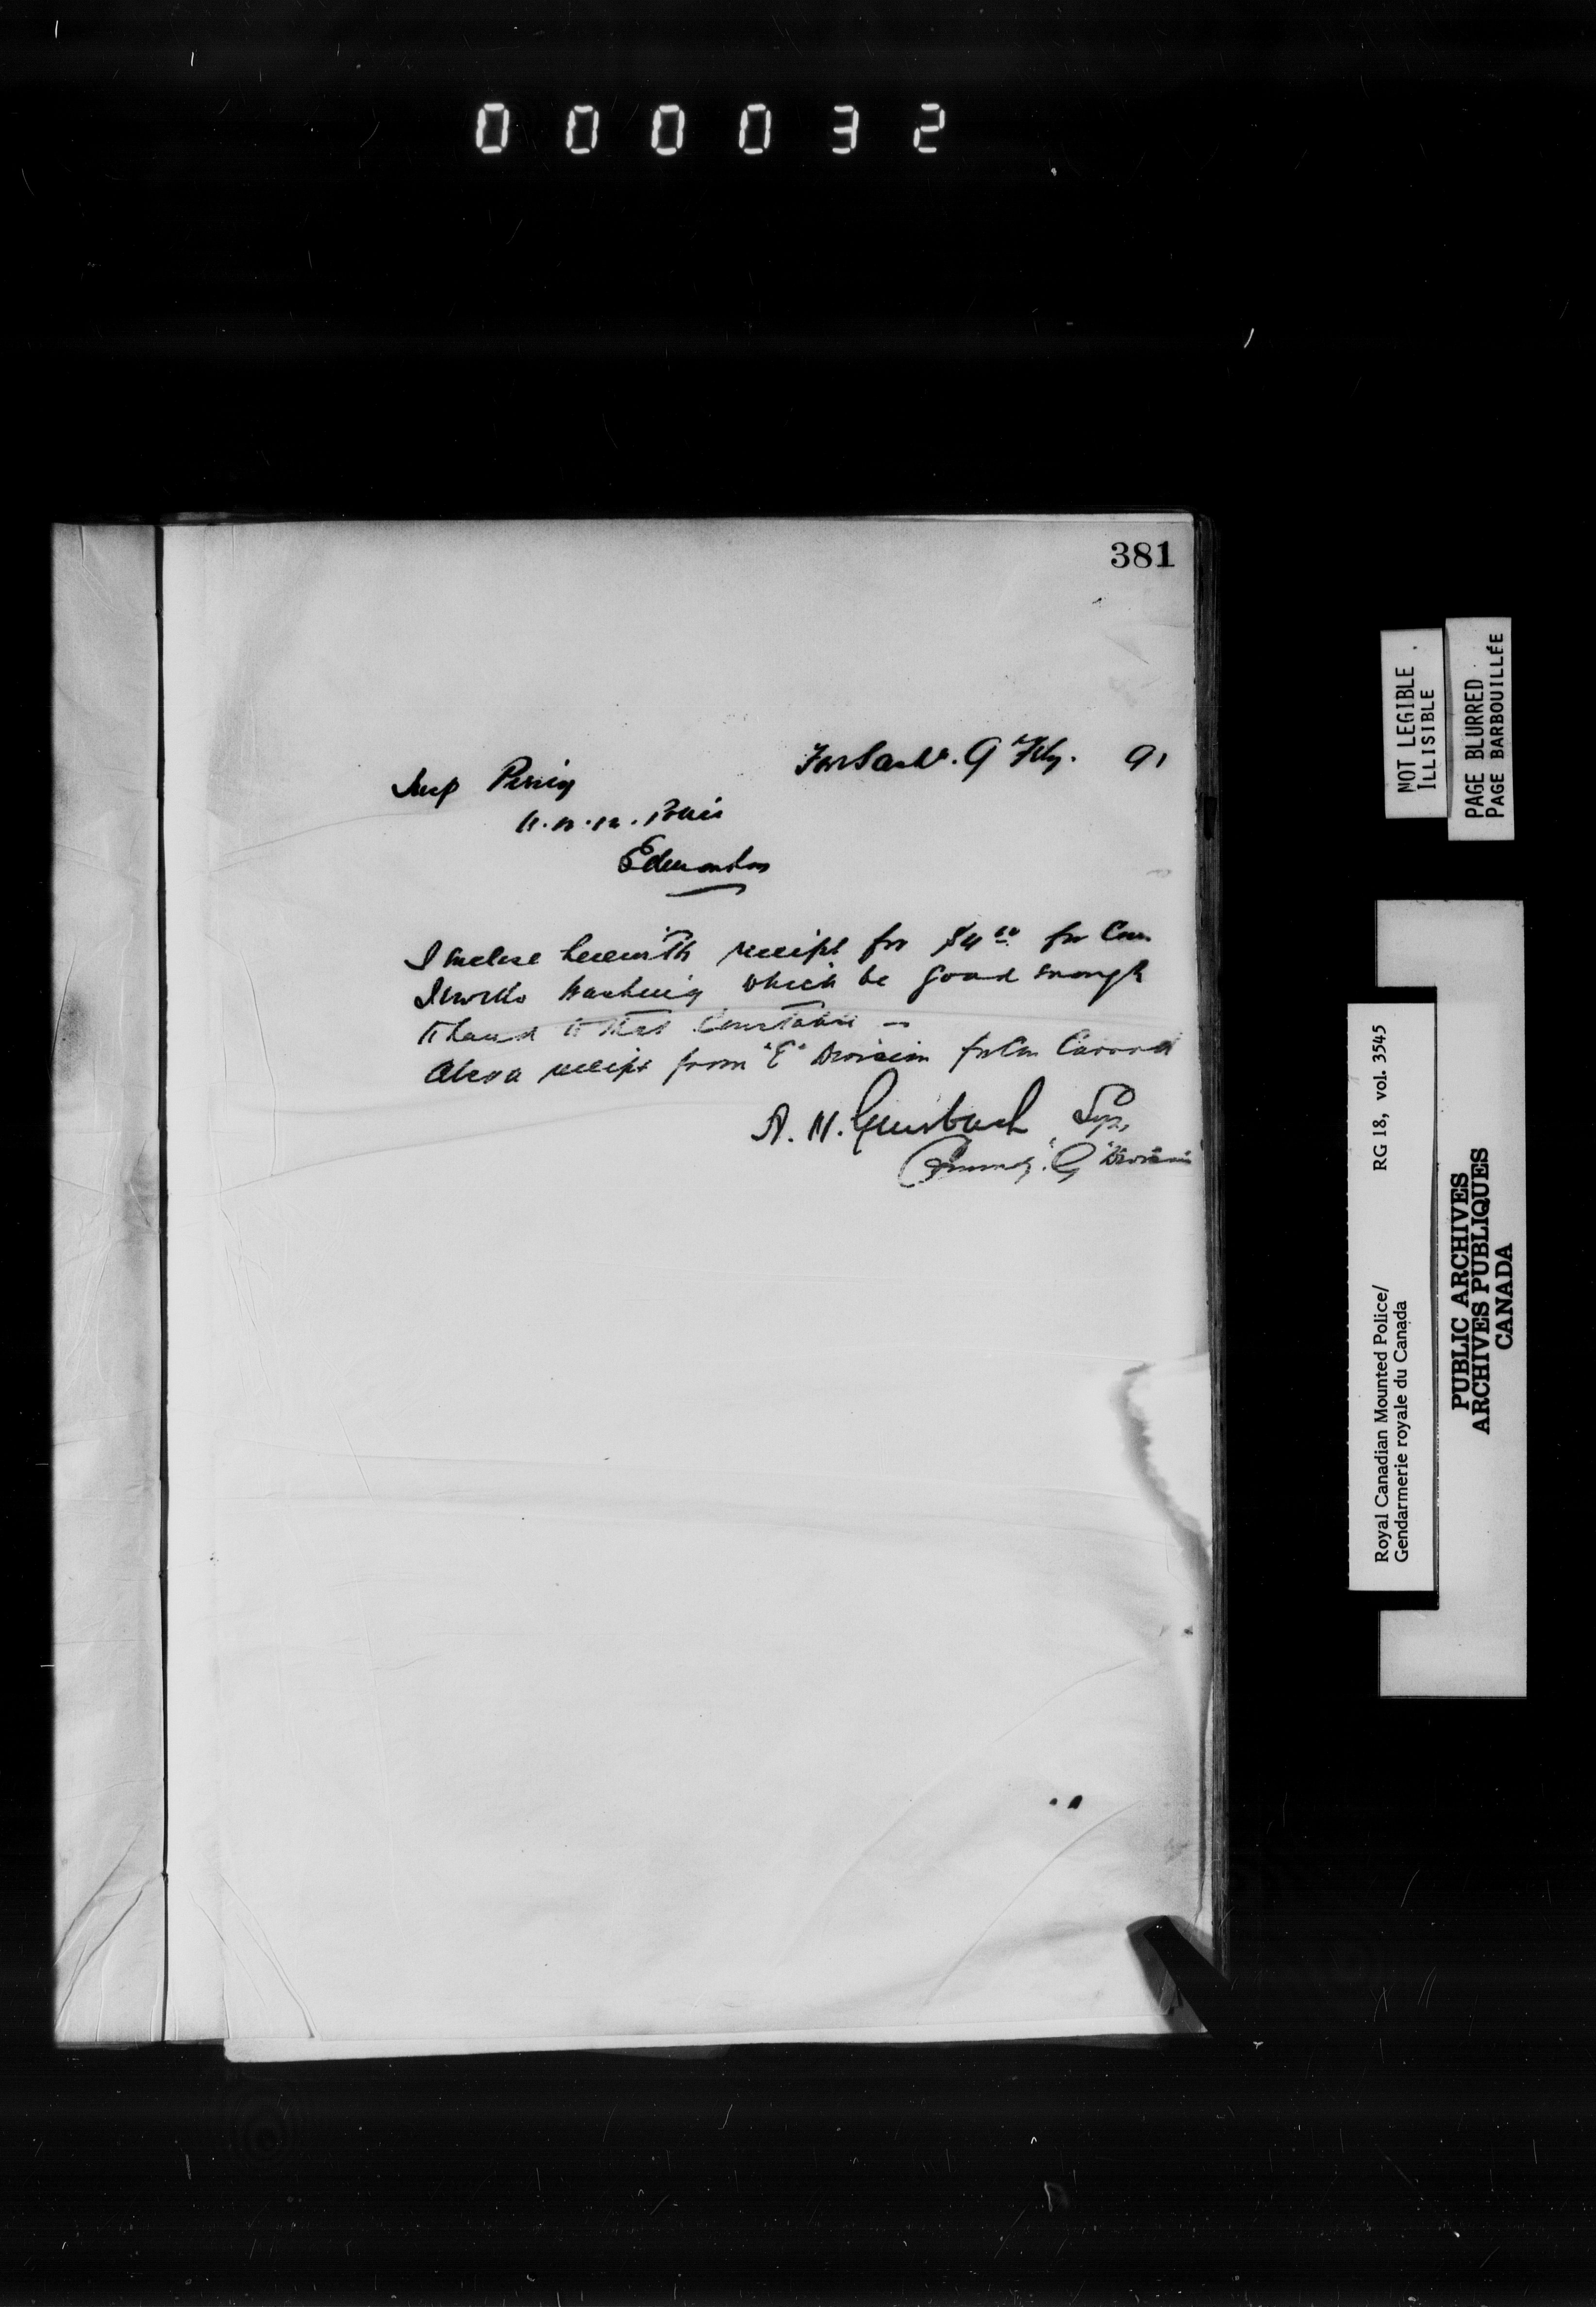 000032
381
Fort Sask. 9 Feby. 91
Insp Piercy
N.W.M. Police
Edmonton
I enclose herewith receipt for $4 00 for Con
washing which be good enough
to hand to that Constable —
Also a receipt from "E" Division for Con
A. H. Griesbach Sup.
Commdg. "G" Division
NOT LEGIBLE
ILLISIBLE
PAGE BLURRED
PAGE BARBOUILLÉE
Royal Canadian Mounted Police/
Gendarmerie royale du Canada
RG 18, vol. 3545
PUBLIC ARCHIVES
ARCHIVES PUBLIQUES
CANADA